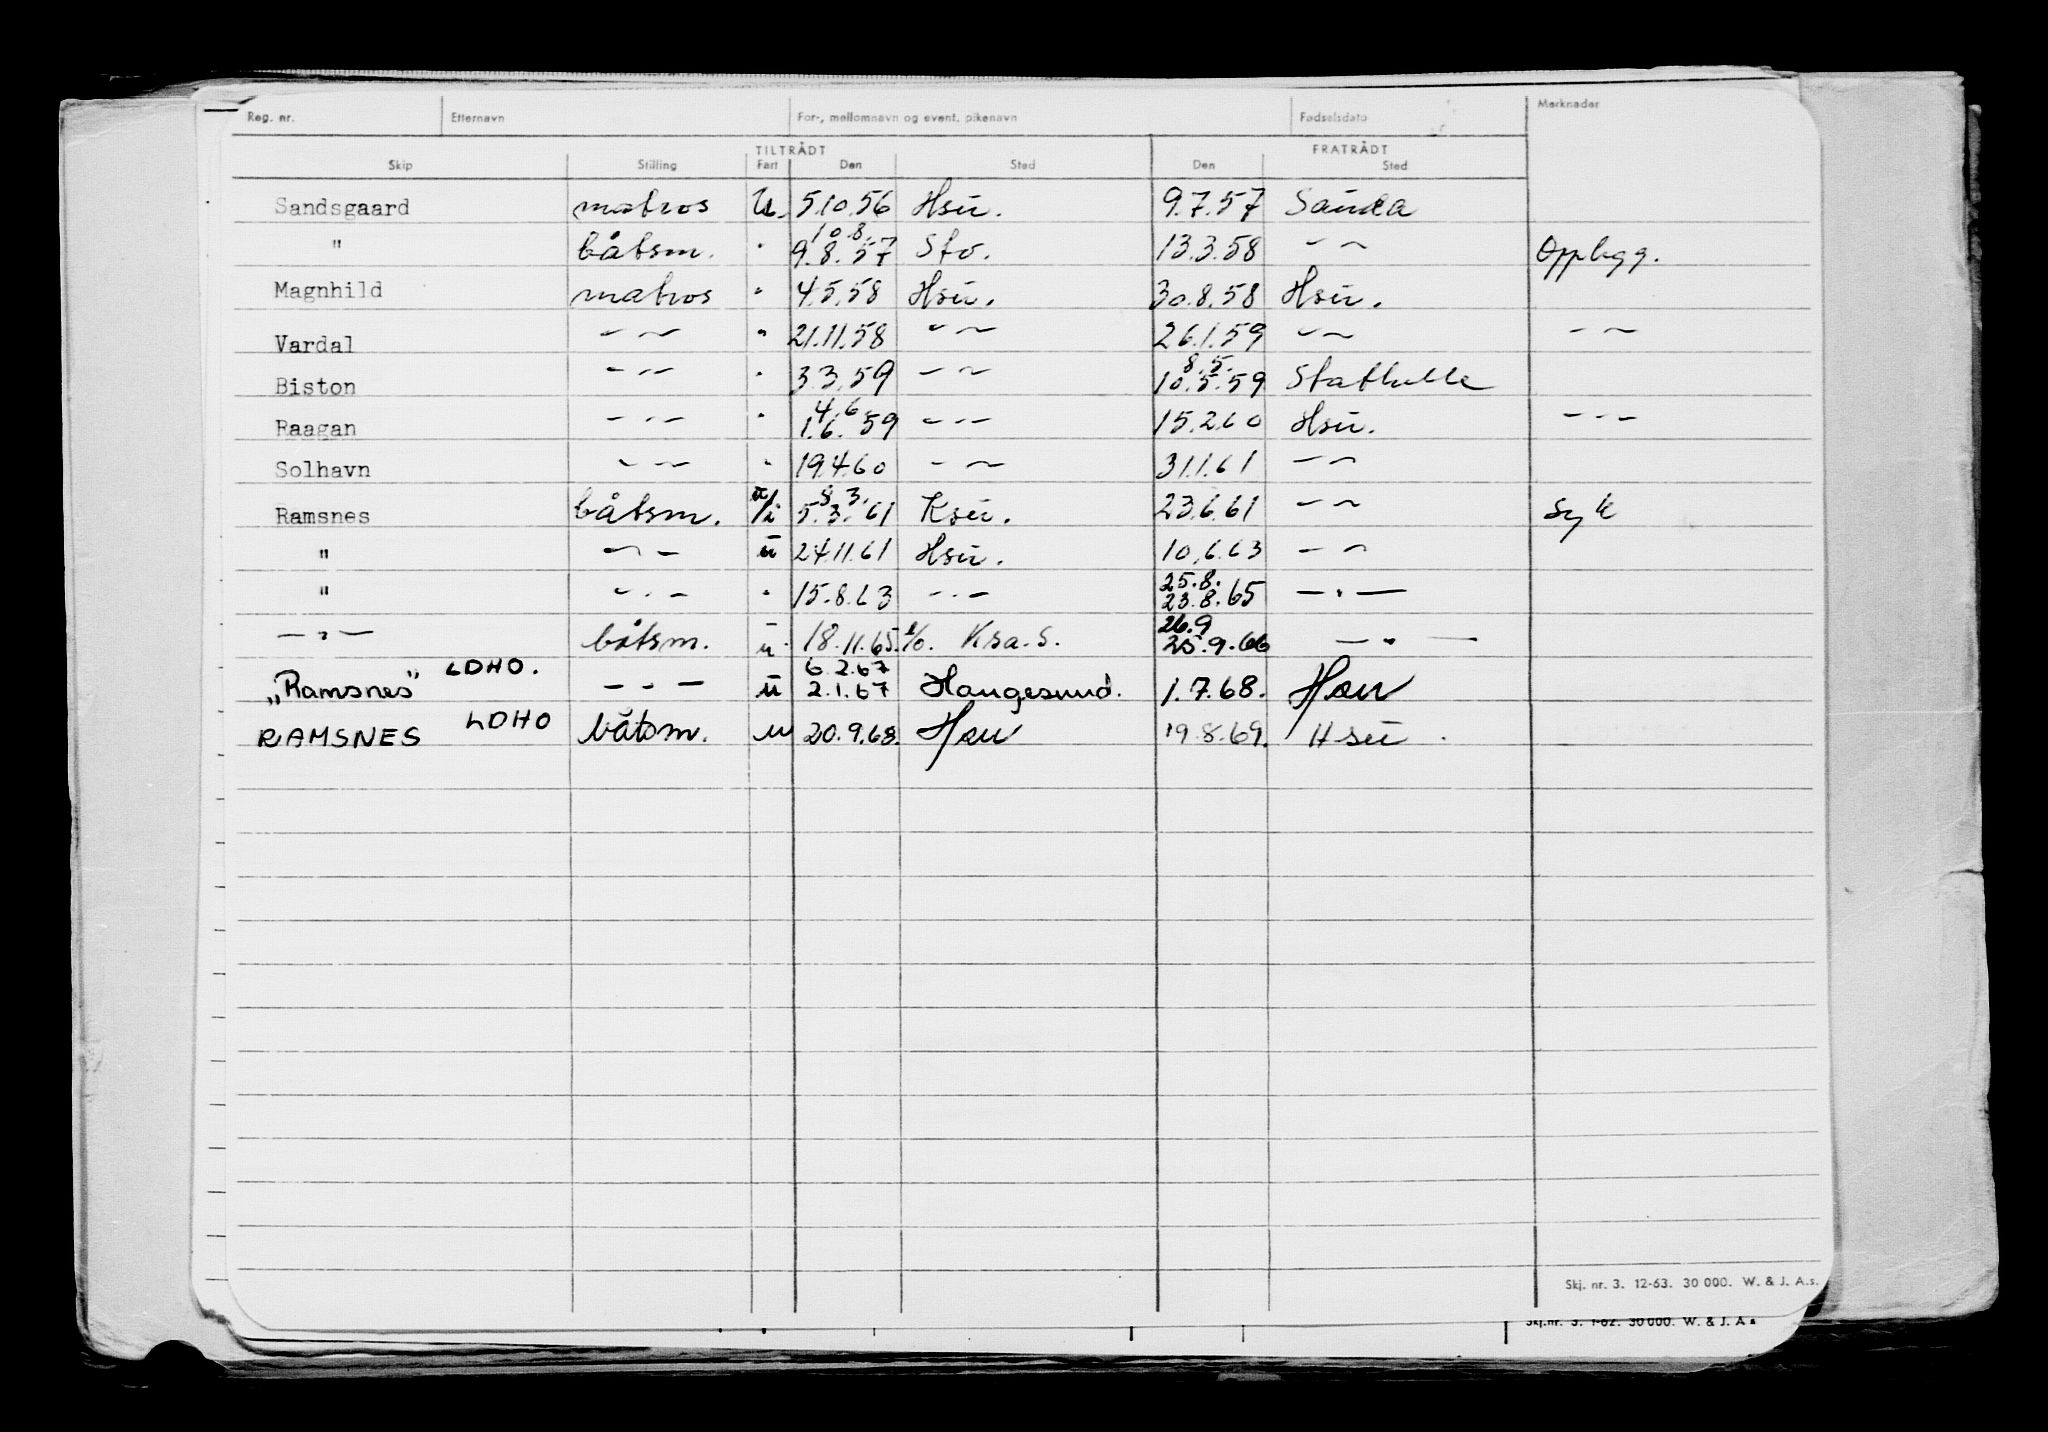 Reg. nr. Etternavn For-, mellomnavn og event. pikenavn Fødselsdato Merknader
TILTRÅDT FRATRÅDT
Skip Stilling Fart Den Sted Den Sted
Sandsgaard matros U. 5.10.56 Hsu. 9.7.57 Sauda
10.8.
" båtsm. " 9.8.57 Sto. 13.3.58 — " — Opplegg.
Magnhild matros " 4.5.58 Hsu. 30.8.58 Hsu.
Vardal — " — " 21.11.58 — " — 26.1.59 — " — — " —
8.5.
Biston — " — " 3.3.59 — " — 10.5.59 Stathelle
4.6
Raagan — " — " 1.6.59 — " — 15.2.60 Hsu. — " —
Solhavn — " — " 19.4.60 — " — 31.1.61 — " —
8.3.
Ramsnes båtsm. u/i 5.3.61 Ksu. 23.6.61 — " — Syk
" — " — u 24.11.61 Hsu. 10.6.63 — " —
25.8.
" — " — " 15.8.63 — " — 23.8.65 — " —
26.9
— " — båtsm. u 18.11.65. Krs.S. 25.9.66 — " —
6.2.67
„Ramsnes" LDHO. — " — u 2.1.67 Haugesund. 1.7.68. Hau
RAMSNES LDHO båtsm. u 20.9.68. Hau 19.8.69. Hsu.
Skj. nr. 3. 12-63. 30 000. W. & J. A.s.
Skj.nr. 3. 1-62. 30 000. W. & J. A.s